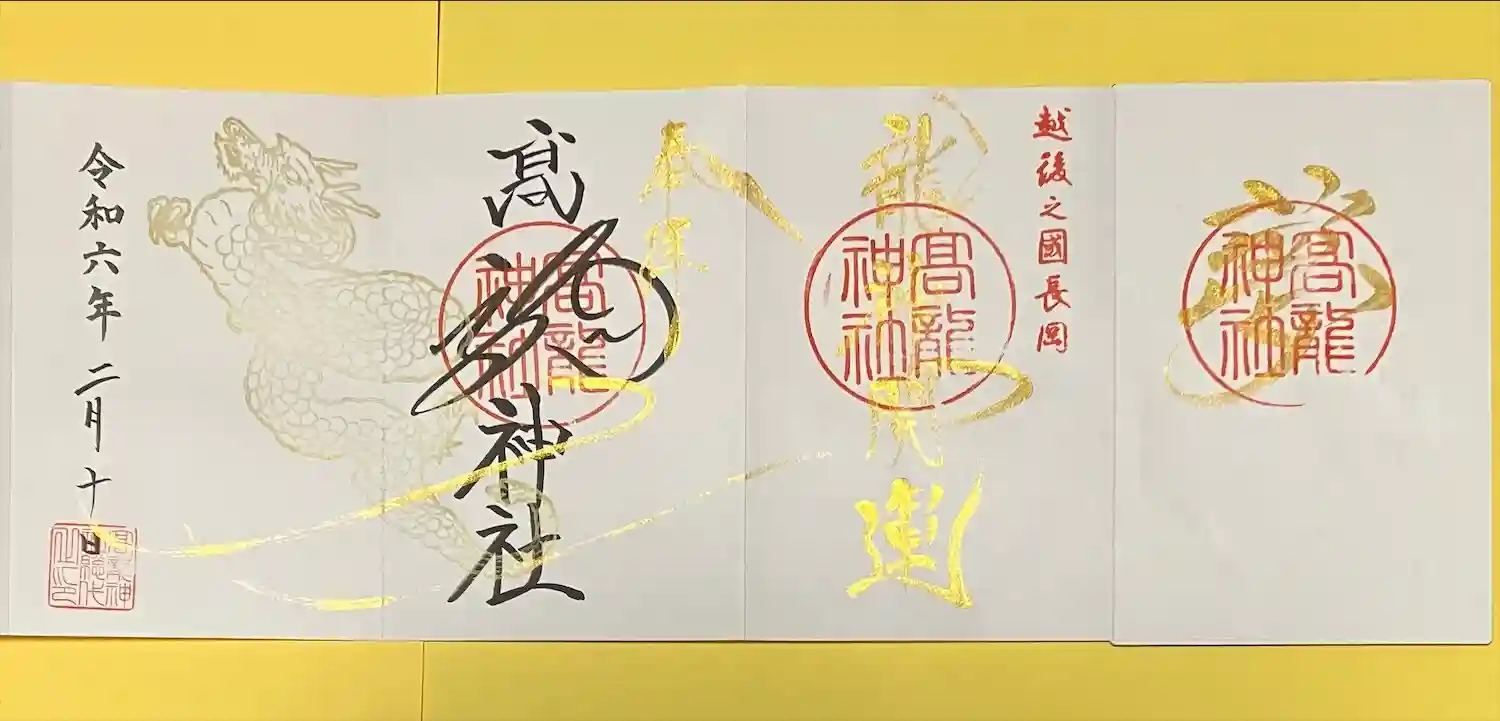 髙龍
神社
越後之國長岡
龍
運
髙龍
神社
髙龍神社
髙龍
神社
令和六年 二月十日